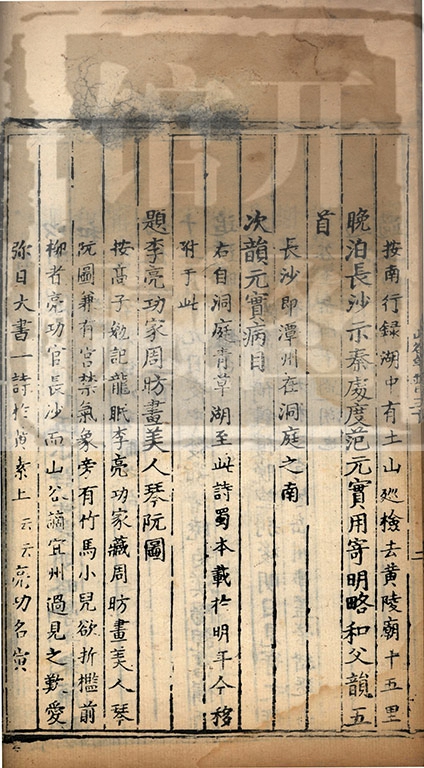 按南行録湖中有土山廵檢去黄陵廟十五里
晚泊長沙示秦處度范元實用寄明略和父韻五
首
長沙即潭州在洞庭之南
次韻元實病目
右自洞庭青草湖至此詩蜀本載於明年今移
附于此
題李亮功家周昉畫美人琴阮圖
按高子勉記龍眠李亮功家藏周昉畫美人琴
阮圖兼有宫禁氣象旁有竹馬小兒欲折檻前
柳者亮功官長沙而山谷謫宜州過見之歎愛
弥日大書一詩於黄素上云云亮功名寅